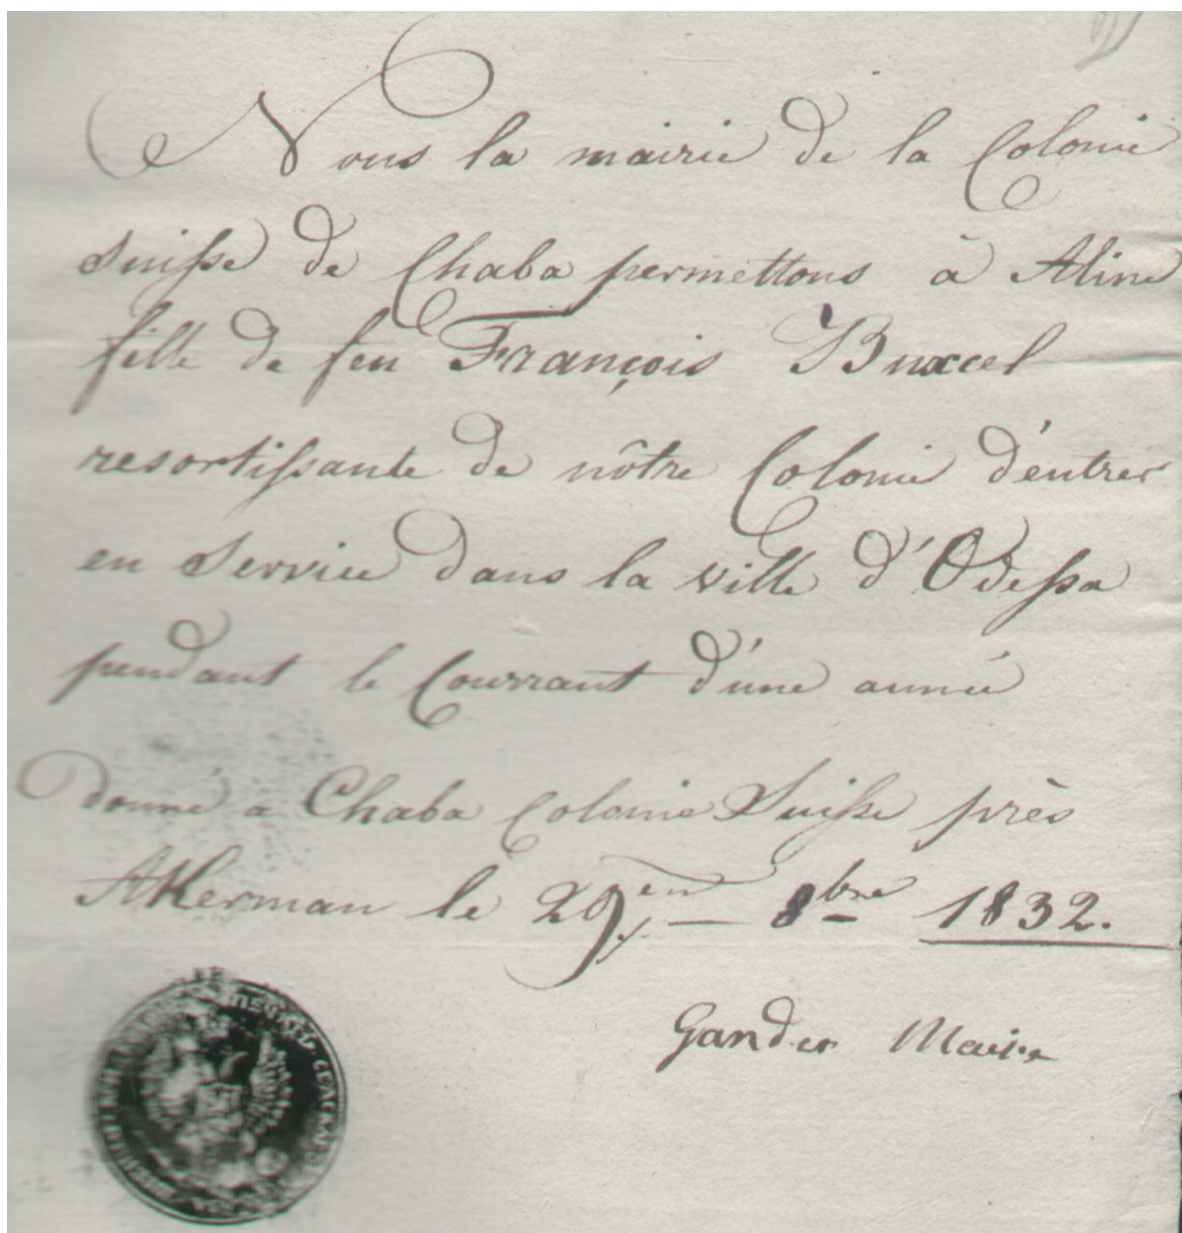 Nous la mairie de la Colonie
Suisse de Chaba permettons à Aline
fille de feu François Buxcel
resortissante de nôtre Colonie d'entrer
en Service dans la ville d'Odessa
pendant le Courrant d'une année
Donné a Chaba Colonie Suisse près
Akerman le 29en 8bre 1832.
Gander Maire